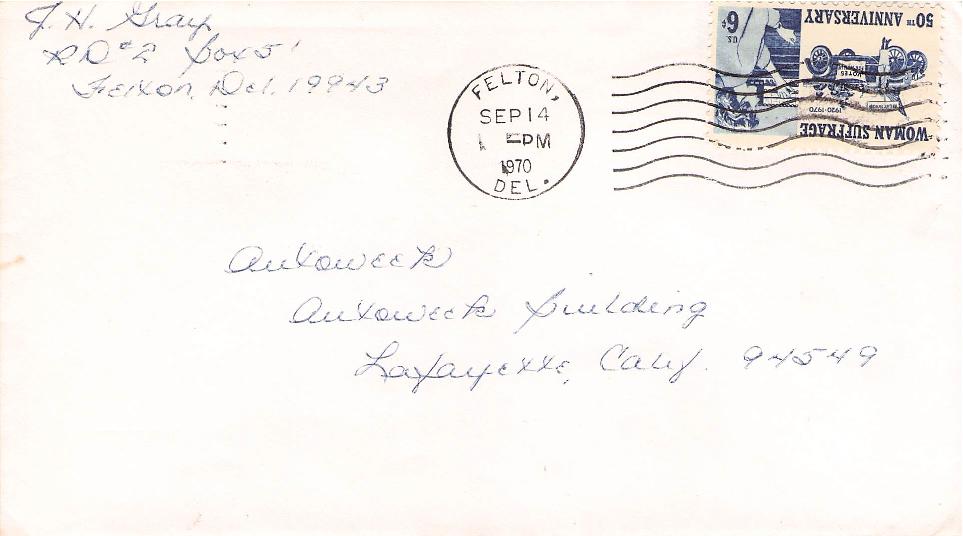 J. H. Gray
RD #2 Box 51
Felton, Del. 19943
FELTON,
SEP 14
PM
1970
DEL.
50TH ANNIVERSARY
US 6¢
VOTES
1920-1970
WOMAN SUFFRAGE
Autoweek
Autoweek Building
Lafayette, Calif. 94549